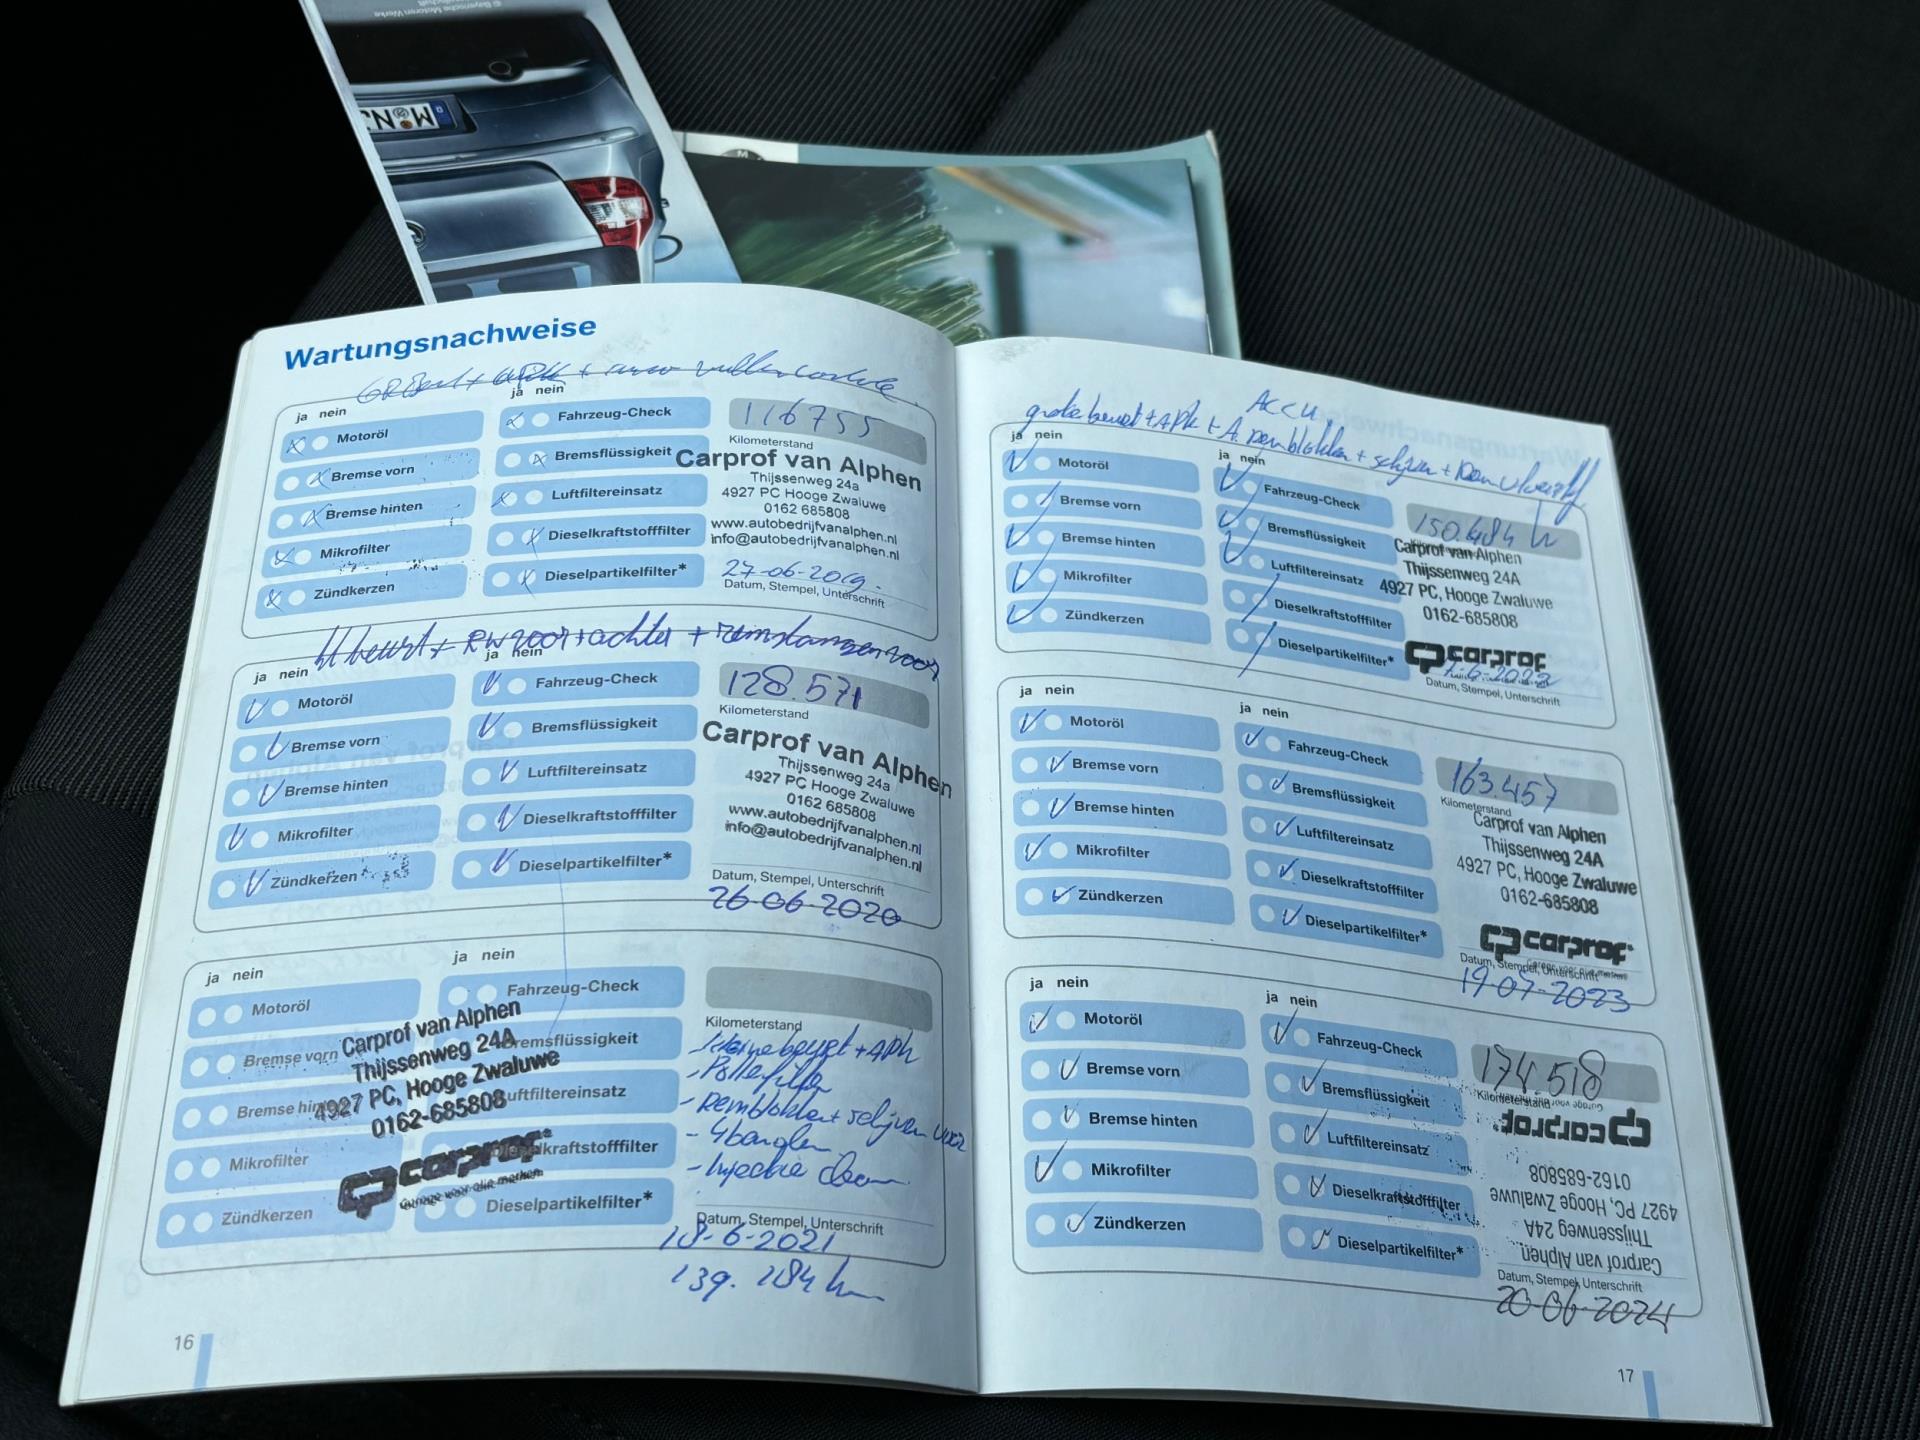 © Bayerische Motoren Werke
Wartungsnachweise
ja nein
ja nein
Motoröl
Bremse vorn
Bremse hinten
Mikrofilter
Zündkerzen
Fahrzeug-Check
Bremsflüssigkeit
Luftfiltereinsatz
Dieselkraftstofffilter
Dieselpartikelfilter*
116755
Kilometerstand
Carprof van Alphen
Thijssenweg 24a
4927 PC Hooge Zwaluwe
0162 685808
www.autobedrijfvanalphen.nl
info@autobedrijfvanalphen.nl
27-06-2019.
Datum, Stempel, Unterschrift
beurt + RW voor + achter + remslangen voor
ja nein
ja nein
Motoröl
Bremse vorn
Bremse hinten
Mikrofilter
Zündkerzen
Fahrzeug-Check
Bremsflüssigkeit
Luftfiltereinsatz
Dieselkraftstofffilter
Dieselpartikelfilter*
128.571
Kilometerstand
Carprof van Alphen
Thijssenweg 24a
4927 PC Hooge Zwaluwe
0162 685808
www.autobedrijfvanalphen.nl
info@autobedrijfvanalphen.nl
Datum, Stempel, Unterschrift
26-06-2020
ja nein
ja nein
Motoröl
Bremse vorn
Bremse hinten
Mikrofilter
Zündkerzen
Fahrzeug-Check
Bremsflüssigkeit
Luftfiltereinsatz
Dieselkraftstofffilter
Dieselpartikelfilter*
Carprof van Alphen
Thijssenweg 24A
4927 PC, Hooge Zwaluwe
0162-685808
carprof
Garage voor alle merken
Kilometerstand
- kleine beurt + APK
- Pollenfilter
- Remblokken + schijven voor
- 4 banden
- Injectie clean
Datum, Stempel, Unterschrift
18-6-2021
139.184 km
16
ACCU
grote beurt + APK + A. remblokken + schijven + Remvloeistof
ja nein
ja nein
Motoröl
Bremse vorn
Bremse hinten
Mikrofilter
Zündkerzen
Fahrzeug-Check
Bremsflüssigkeit
Luftfiltereinsatz
Dieselkraftstofffilter
Dieselpartikelfilter*
150.484
Carprof van Alphen
Thijssenweg 24A
4927 PC, Hooge Zwaluwe
0162-685808
carprof
7-6-2022
Datum, Stempel, Unterschrift
ja nein
ja nein
Motoröl
Bremse vorn
Bremse hinten
Mikrofilter
Zündkerzen
Fahrzeug-Check
Bremsflüssigkeit
Luftfiltereinsatz
Dieselkraftstofffilter
Dieselpartikelfilter*
163.457
Kilometerstand
Carprof van Alphen
Thijssenweg 24A
4927 PC, Hooge Zwaluwe
0162-685808
carprof
Garage voor alle merken
Datum, Stempel, Unterschrift
19-07-2023
ja nein
ja nein
Motoröl
Bremse vorn
Bremse hinten
Mikrofilter
Zündkerzen
Fahrzeug-Check
Bremsflüssigkeit
Luftfiltereinsatz
Dieselkraftstofffilter
Dieselpartikelfilter*
174.518
Kilometerstand
Carprof van Alphen
Thijssenweg 24A
4927 PC, Hooge Zwaluwe
0162-685808
carprof
Garage voor alle merken
Datum, Stempel, Unterschrift
20-06-2024
17